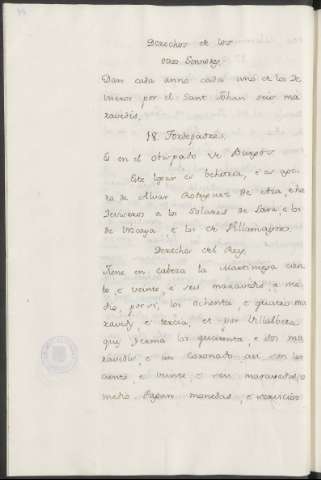 Derechos de los
otros Sennores.
Dan cada anno cada uno de los de
viseros por el Sant Johan seis ma
ravedis,
18. Fontepadres,
Es en el obispado de Burgos
Este logar es behetria, e es
de Alvar Rodriguez de Aza, e ha
deviseros a los Solares de Lara e los
de Vizcaya, e los de Villamayor.
Derechos del Rey.
Tiene en cabeza la Martiniega cien
to, e veinte, e seis maravedis, e me
dio, por si, los ochenta, e quatro ma
ravedis, e tercia, et por Villalbera
que yerma los quarenta, e dos ma
ravedis, e un coronado asi son los
ciento, e veinte, e seis maravedis, e
medio. Pagan monedas, e servicios